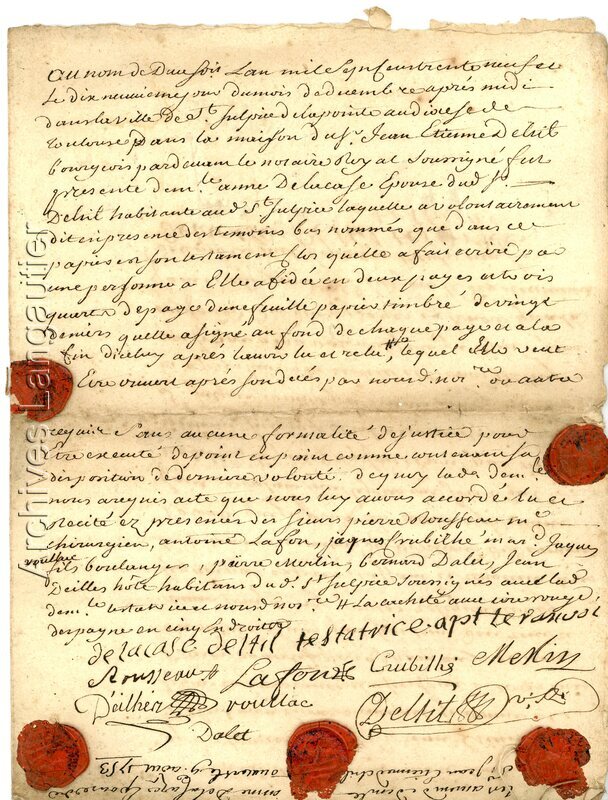 Au nom de Dieu soit Lan mil sept cens trente neuf et
Le dix neuvieme jour du mois de decembre après midi
dans la ville de st. Sulpice de la pointe au dioseze de
toulouse dans la maison du sr. Jean Etienne Delsit
bourgeois pardevant le notaire Royal soussigné fut
presente demlle anne Delacase Epouse dud sr.
Delsil habitante aud st sulpice laquelle a volontairement
dit en presence des temoins bas nommés que dans ce
papier est son testament clos quelle a fait ecrire par
une personne a Elle afidée en deux pages et trois
quarts de page dune feuille papier timbré de vingt
deniers quelle a signé au fond de chaque page et a la
fin diceluy après lavoir lu et relu, lequel Elle veut
Etre ouvert après son deces par nousd. nore. ou autre
requis sans aucune formalité de justice pour
Etre executé de point en point comme contenant sa
disposition de derniere volonté. de quoy lad demlle
nous a requis acte que nous luy avons accordé lu et
recité ez presences des sieurs pierre Rousseau me
chirurgien, antoine Lafon, jaques Crubilhé mard Jaques
voullac
fils boulanger, pierre Merlin, bernard Dalet, Jean
Deilles hôte habitans dud. st sulpice soussignés avec lad
demlle testatrice et nousd nore # La acheté avec cire rouge
despagne en cinq Endroits
delacase deltil testatrice
Rousseau Lafon Crubilhé Merlin
Deilhes voullac Deltil
Dalet
9 aout 1753